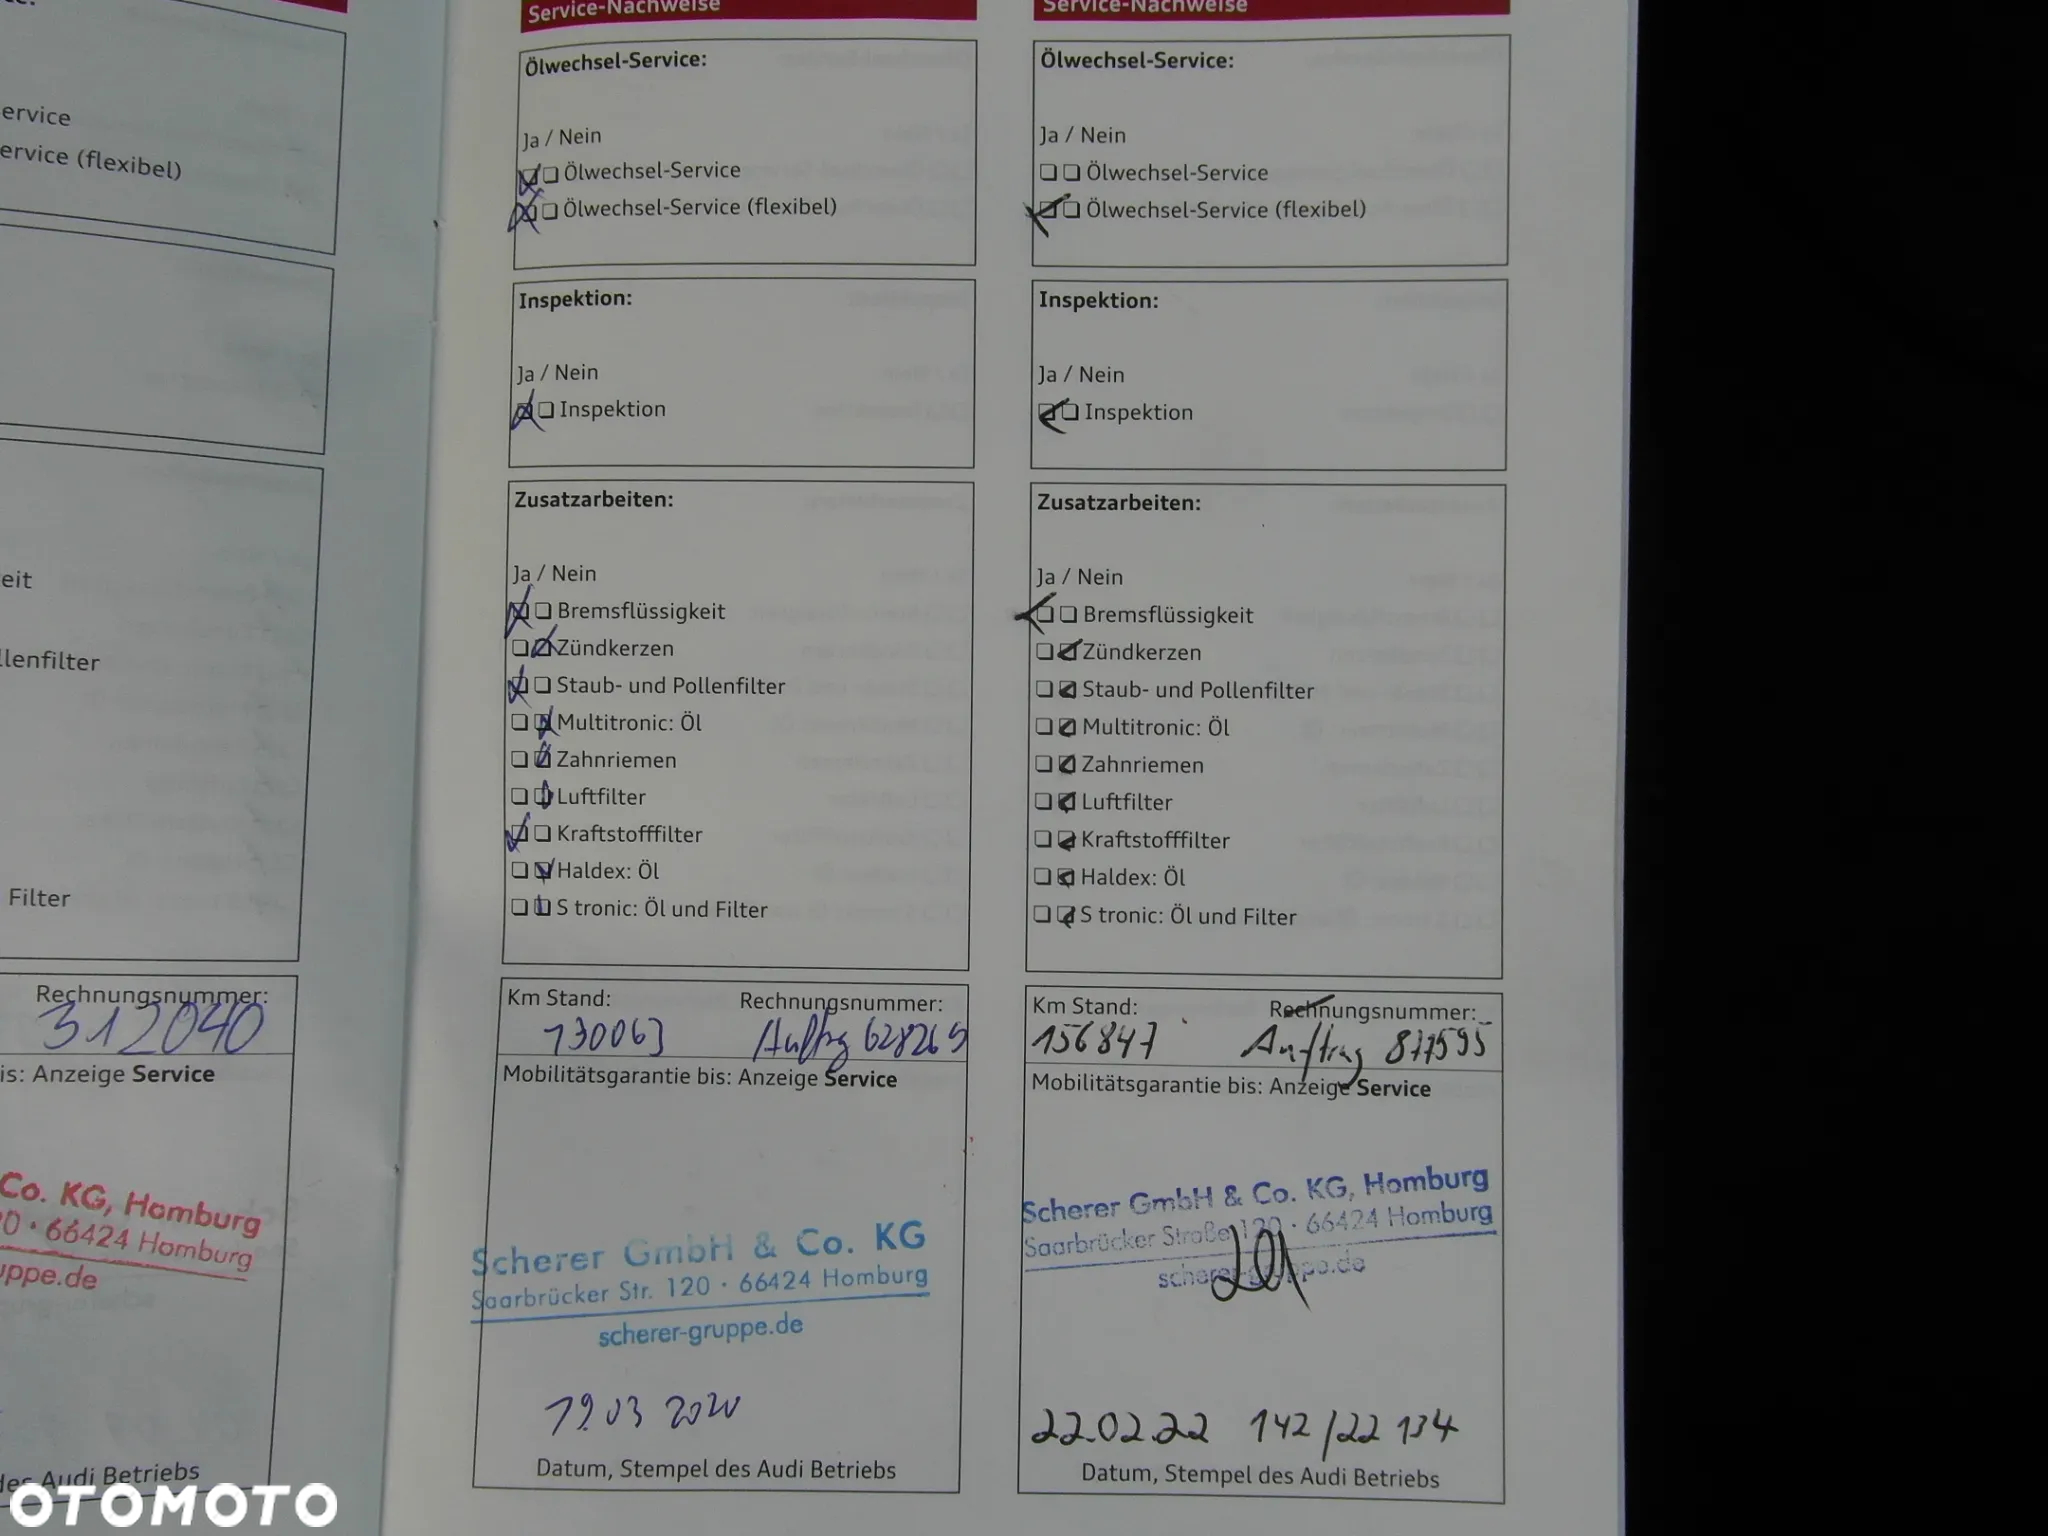 ervice
ervice (flexibel)
eit
llenfilter
Filter
Rechnungsnummer:
312040
is: Anzeige Service
Co. KG, Homburg
20 · 66424 Homburg
uppe.de
des Audi Betriebs
Service-Nachweise
Ölwechsel-Service:
Ja / Nein
Ölwechsel-Service
Ölwechsel-Service (flexibel)
Inspektion:
Ja / Nein
Inspektion
Zusatzarbeiten:
Ja / Nein
Bremsflüssigkeit
Zündkerzen
Staub- und Pollenfilter
Multitronic: Öl
Zahnriemen
Luftfilter
Kraftstofffilter
Haldex: Öl
S tronic: Öl und Filter
Km Stand: Rechnungsnummer:
130063 Auftrag 628269
Mobilitätsgarantie bis: Anzeige Service
Scherer GmbH & Co. KG
Saarbrücker Str. 120 · 66424 Homburg
scherer-gruppe.de
19.03 2020
Datum, Stempel des Audi Betriebs
Service-Nachweise
Ölwechsel-Service:
Ja / Nein
Ölwechsel-Service
Ölwechsel-Service (flexibel)
Inspektion:
Ja / Nein
Inspektion
Zusatzarbeiten:
Ja / Nein
Bremsflüssigkeit
Zündkerzen
Staub- und Pollenfilter
Multitronic: Öl
Zahnriemen
Luftfilter
Kraftstofffilter
Haldex: Öl
S tronic: Öl und Filter
Km Stand: Rechnungsnummer:
156847 Auftrag 877595
Mobilitätsgarantie bis: Anzeige Service
Scherer GmbH & Co. KG, Homburg
Saarbrücker Straße 120 · 66424 Homburg
scherer-gruppe.de
22.02.22 142/22 134
Datum, Stempel des Audi Betriebs
OTOMOTO